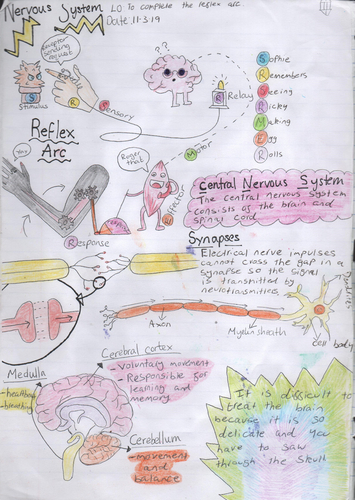 Nervous System
LO: To complete the reflex arc
Date: 11.3.19
Receptor
sending
request
? ?
S
Stimulus
R
Sensory
R
Relay
Sophie
Remembers
Seeing
Ricky
Making
Egg
Rolls
Motor
Reflex
Arc
Roger
that
Effector
Response
Central Nervous System
The central nervous system
consists of the brain and
spinal cord.
Synapses
Electrical nerve impulses
cannot cross the gap in a
synapse so the signal
is transmitted by
Axon
Myelin sheath
cell body
Medulla
- heartbeat
- breathing
Cerebral cortex
- Voluntary movement
- Responsible for
learning and
memory
Cerebellum
- movement
and
balance
It is difficult to
treat the brain
because it is so
delicate and you
have to saw
through the skull